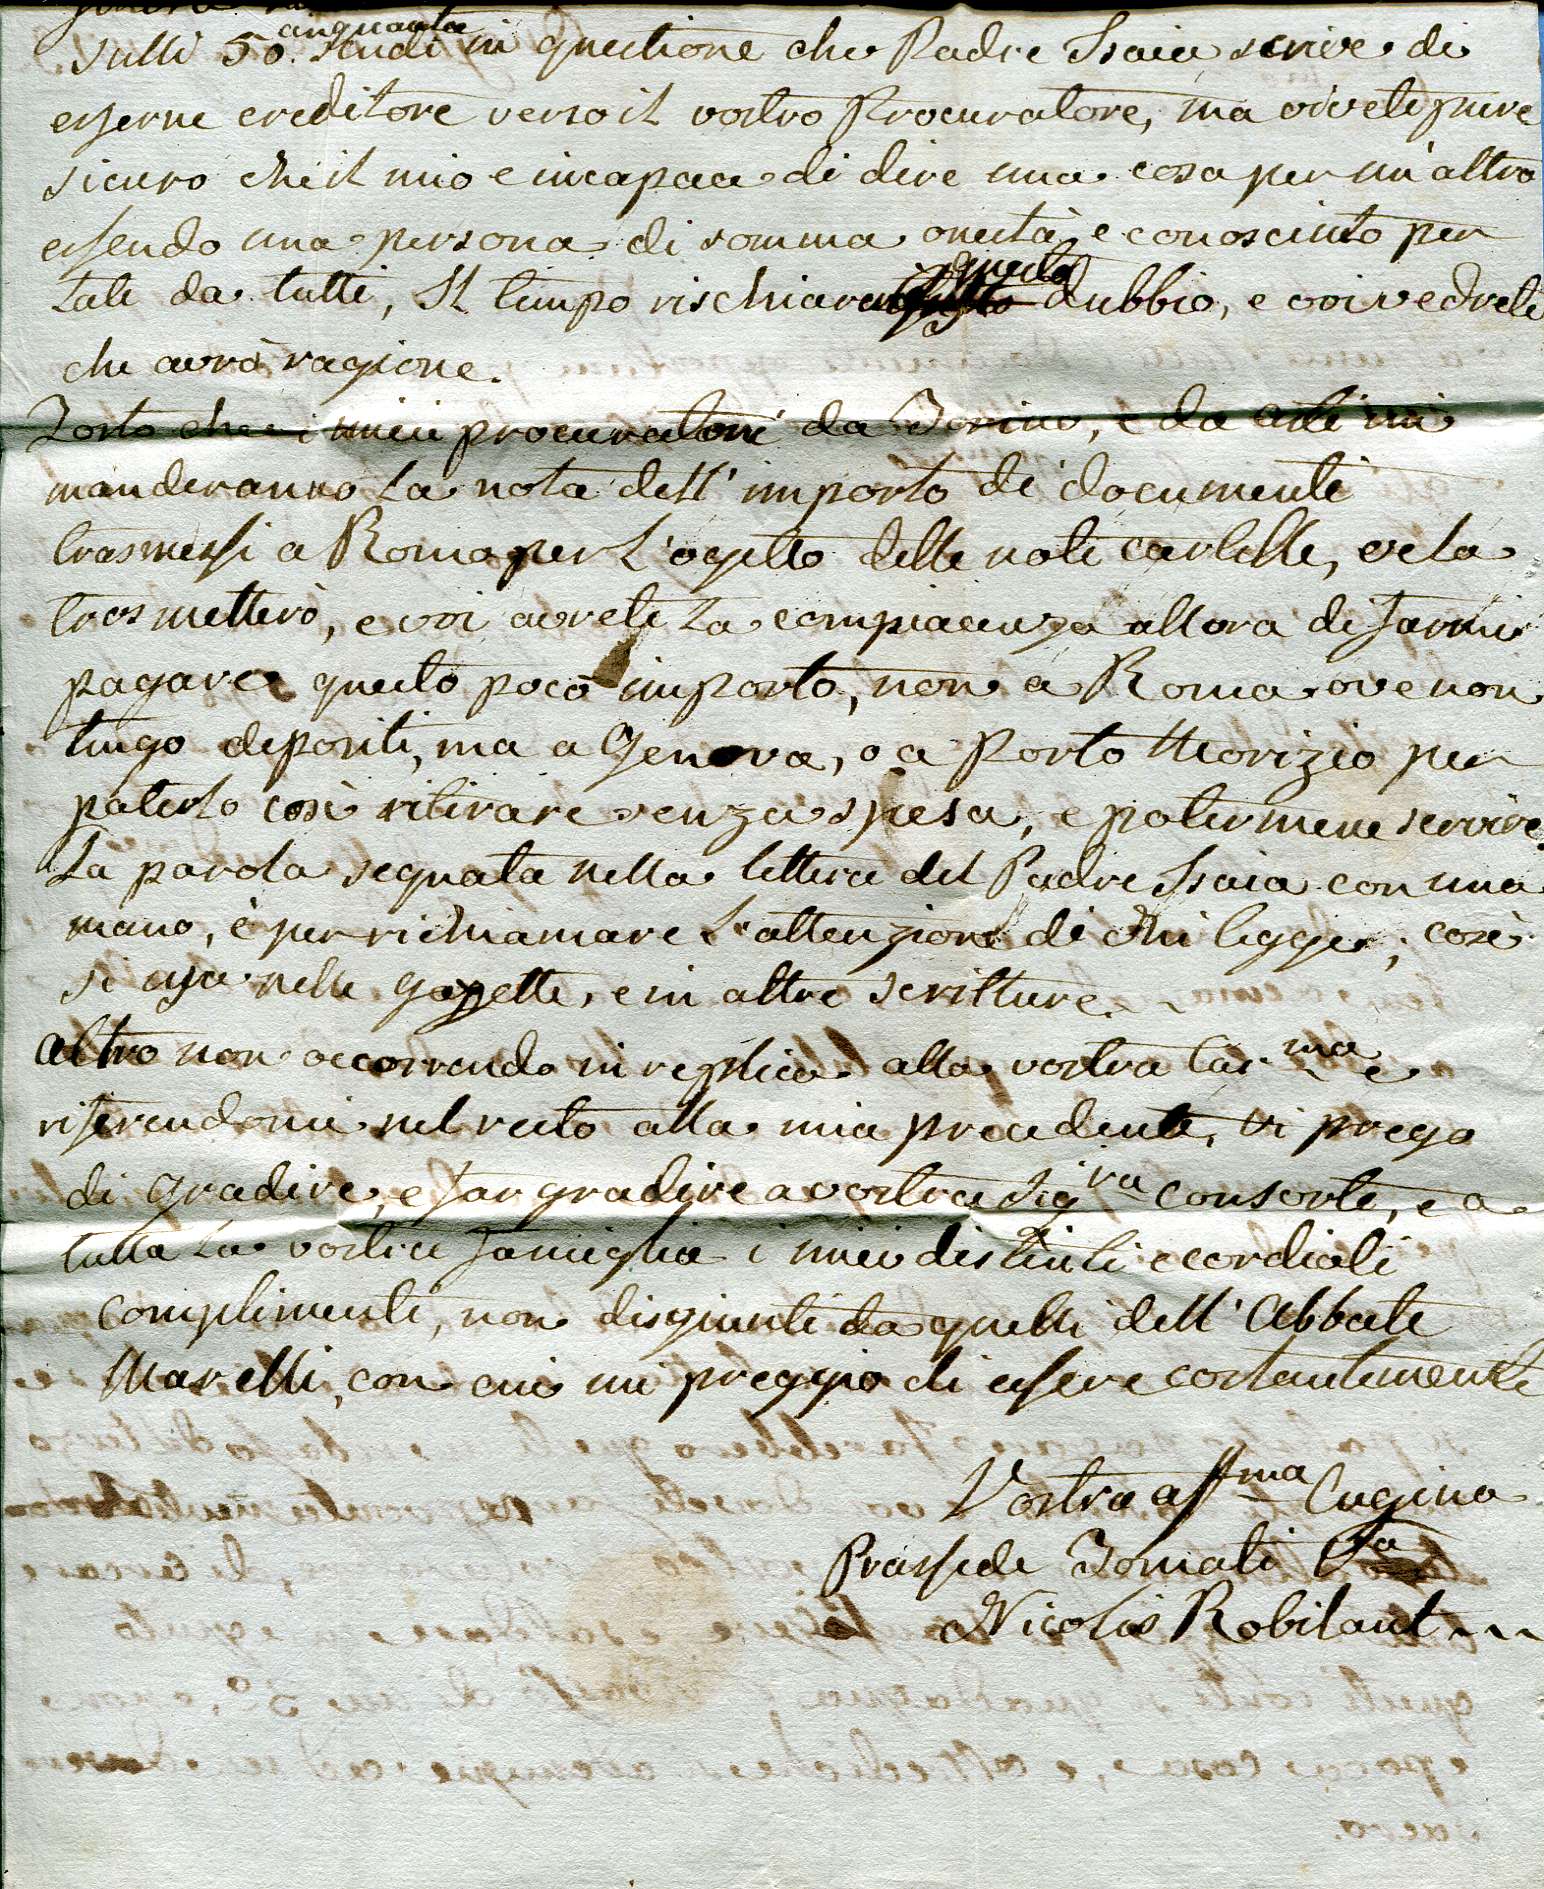 cinquanta
sulli 50. scudi in questione che Padre Isaia scrive di
esserne creditore verso il vostro Procuratore, ma vivete pure
sicuro che il mio e incapace di dire una cosa per un'altra
essendo una persona di somma onestà e conosciuto per
tale da tutti, Il tempo rischiarerà questo dubbio, e voi vedrete
che avrò ragione.
Tosto che i miei procuratori da Torino, e da Asti mi
manderanno la nota dell'importo di documenti
trasmessi a Roma per l'ogetto delle note cartelle, ve la
trasmetterò, e voi avrete la compiacenza allora di farmi
pagare questo poco importo, non a Roma ove non
tengo depositi, ma a Genova, o a Porto Morizio per
poterlo così ritirare senza spesa, e potermene servire.
La parola segnata nella lettera del Padre Isaia con una
mano, è per richiamare l'attenzione di chi legge; così
si usa nelle gazzette, e in altre scritture.
Altro non occorrendo in replica alla vostra Car.ma e
riferendomi nel resto alla mia precedente, vi prego
di gradire, e far gradire a vostra Sig.ra Consorte, e a
tutta la vostra famiglia i miei distinti e cordiali
complimenti, non disgiunti da quelli dell'Abbate
Marelli, con cui mi preggio di essere costantemente
Vostra aff.ma Cugina
Prassede Tomati C.sa
Nicolis Robilant